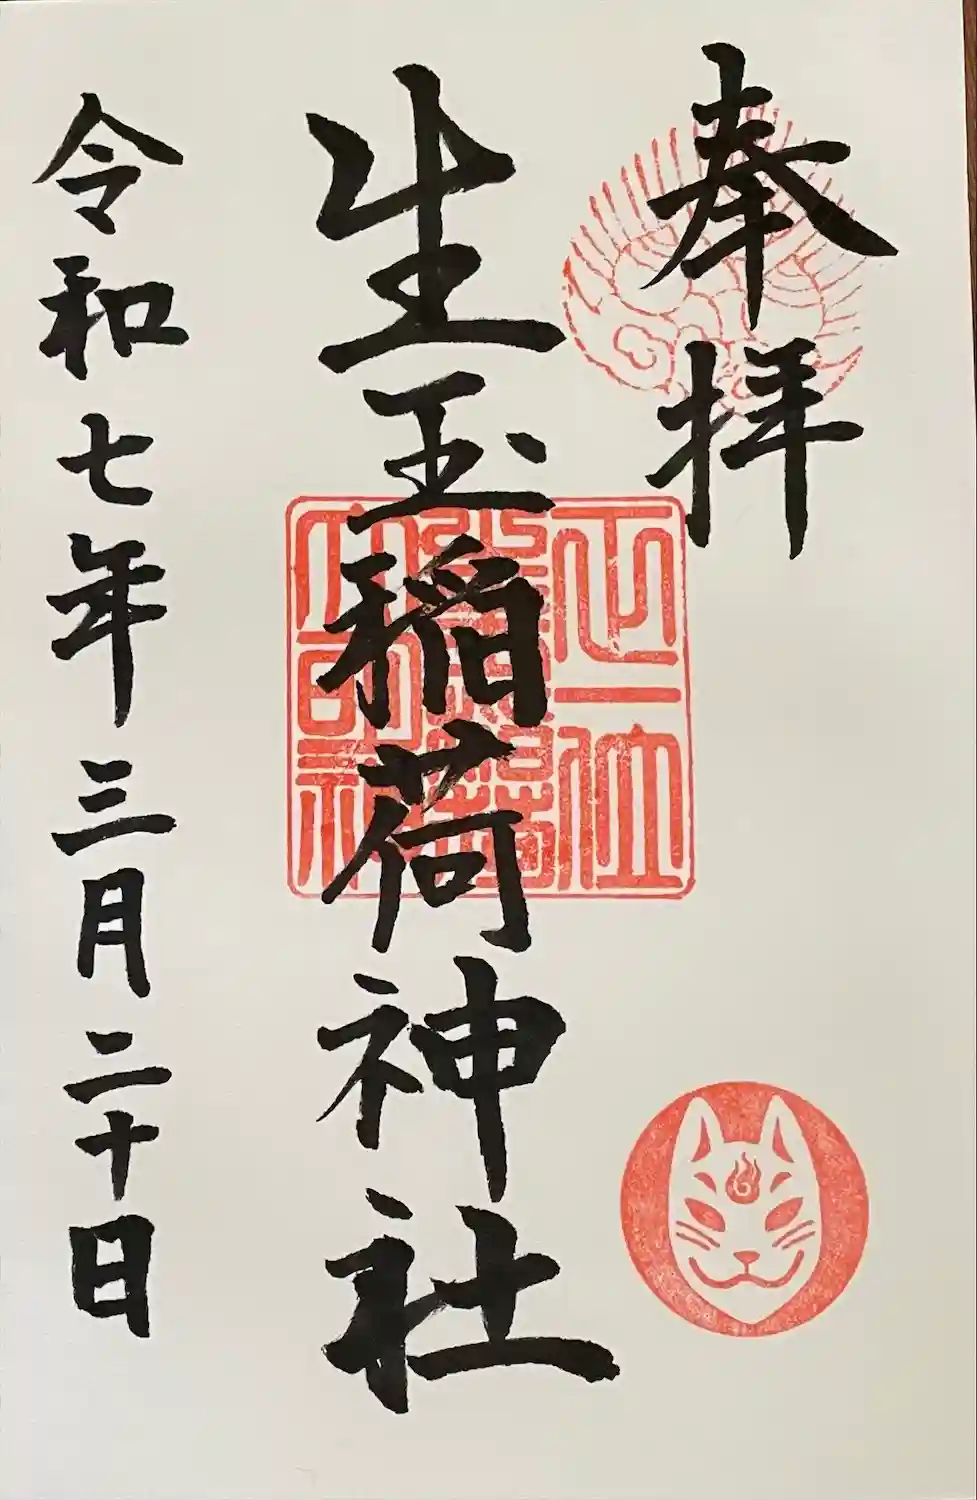 奉拝
生玉稲荷神社
令和七年三月二十日
正一位